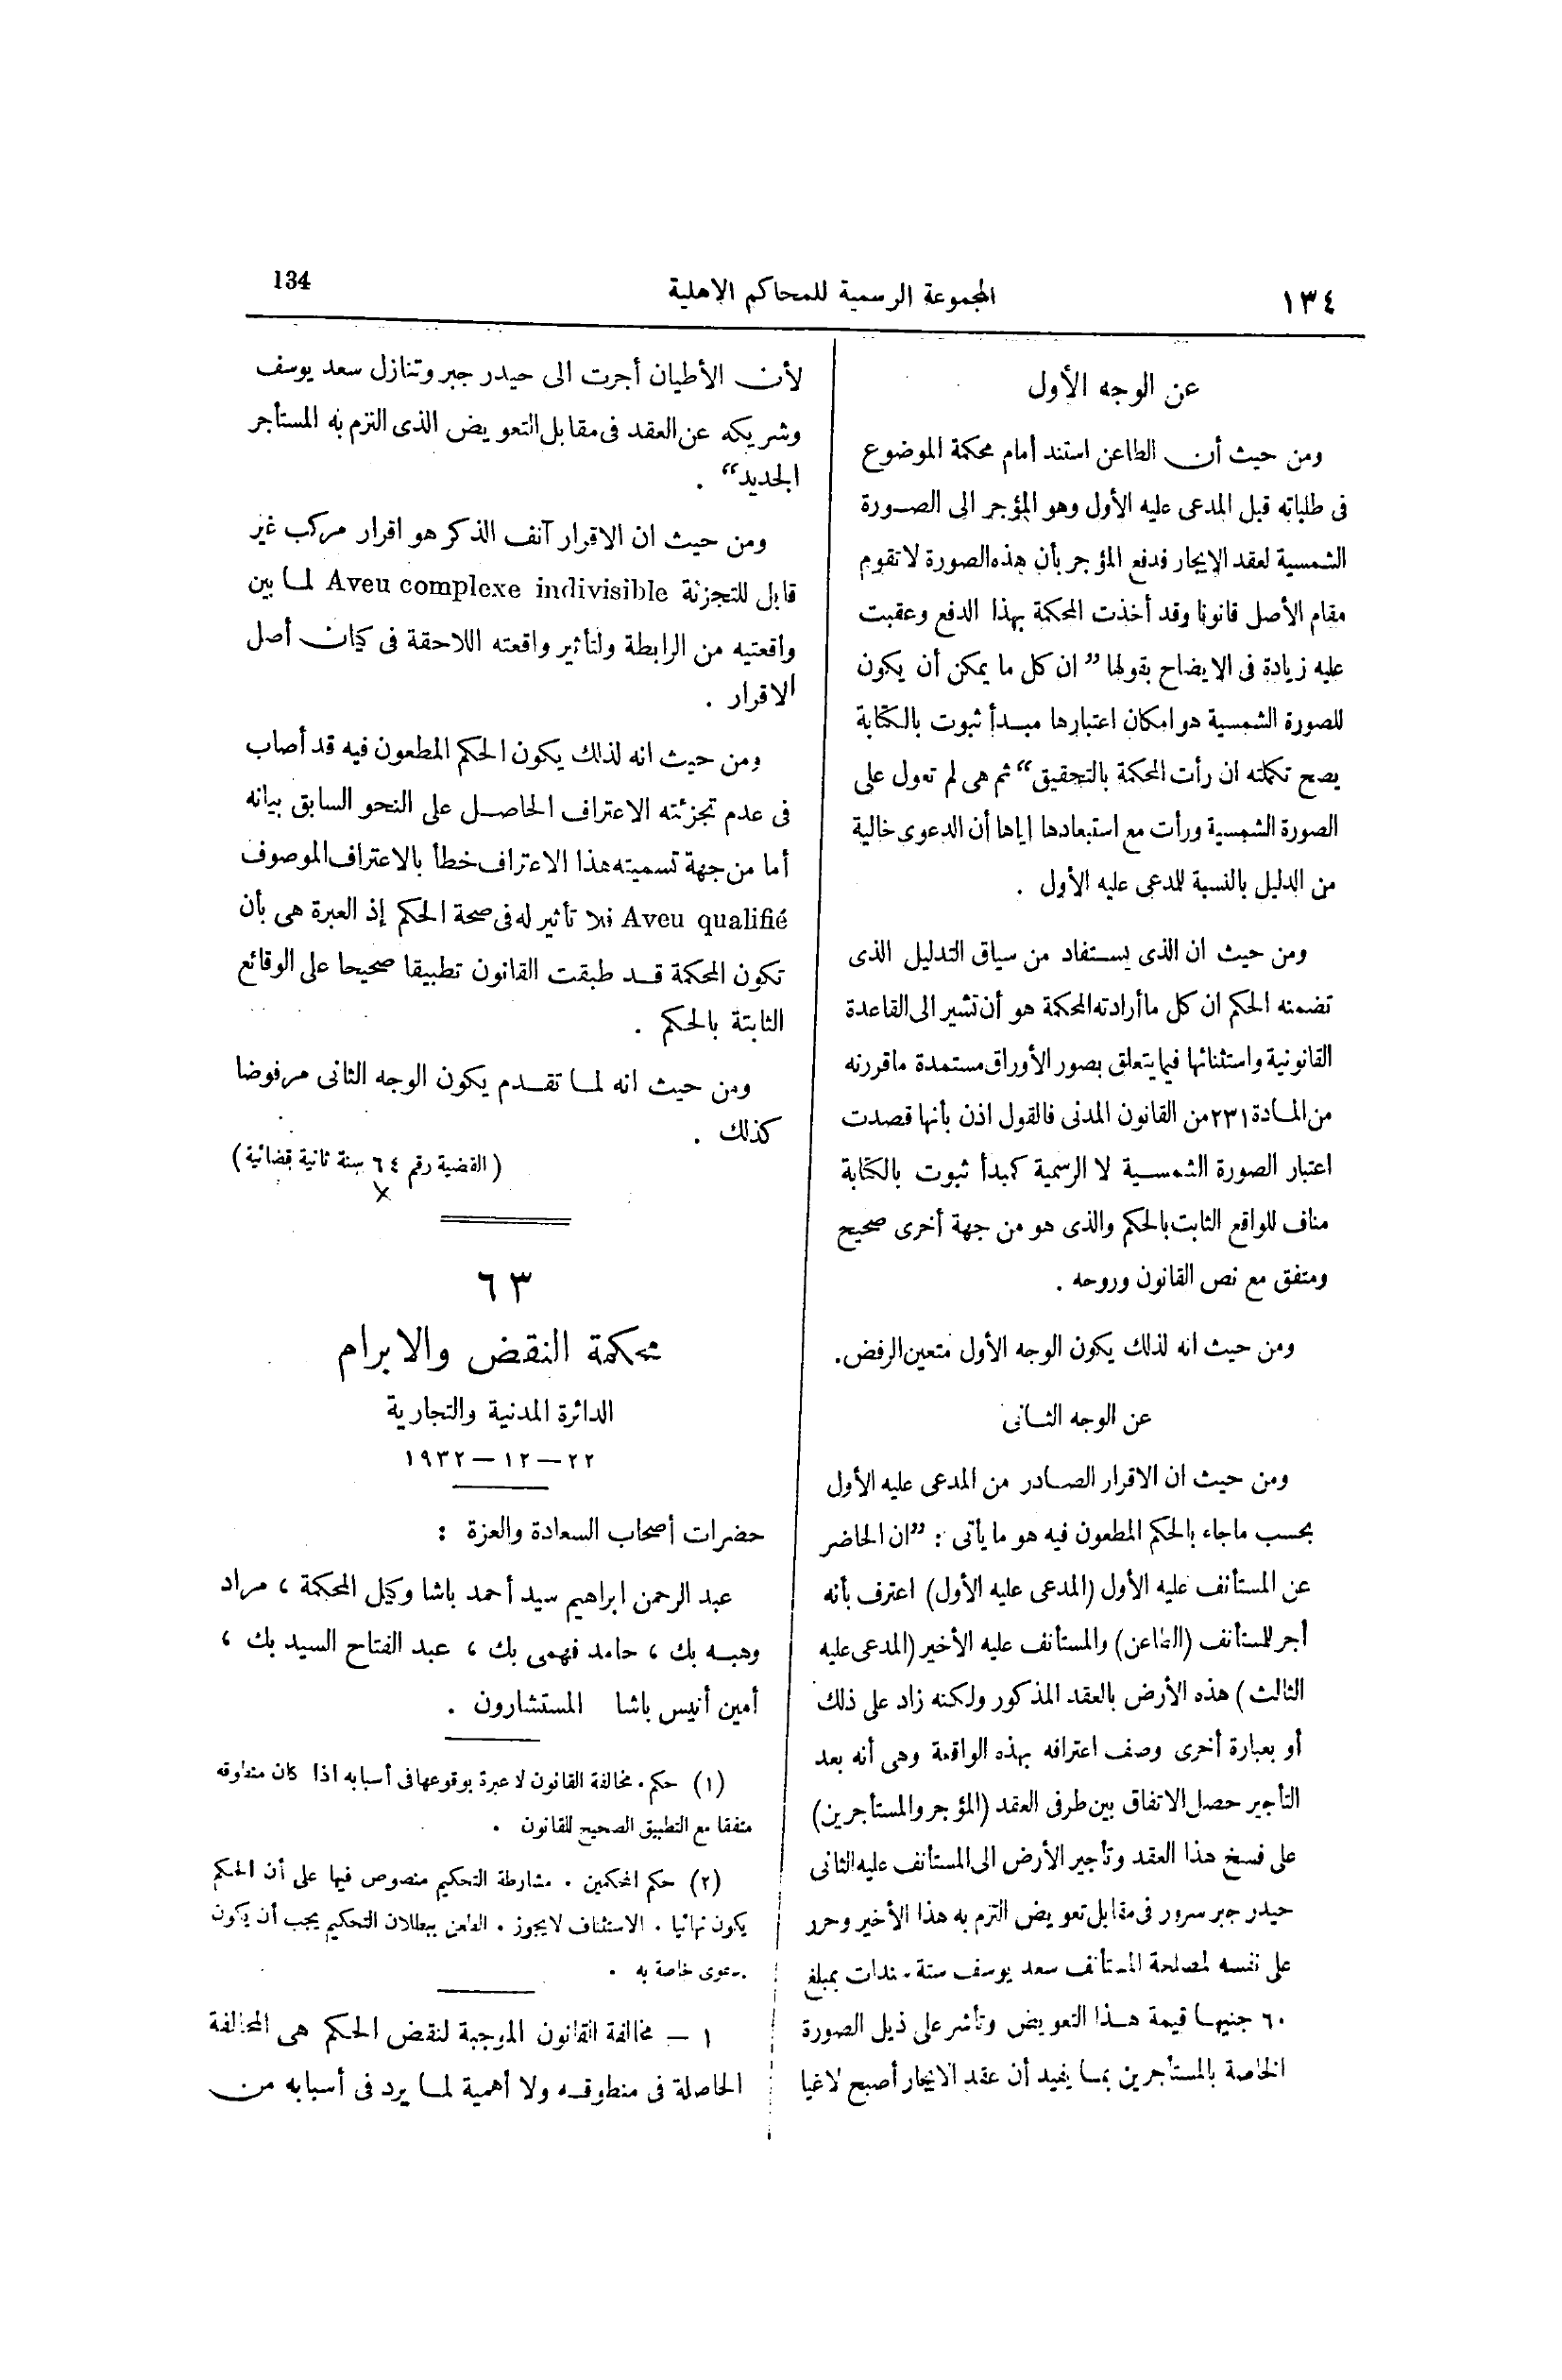 ١٣٤
المجموعة الرسمية للمحاكم الاهلية
134
عن الوجه الأول
ومن حيث أن الطاعن استند أمام محكمة الموضوع
فى طلباته قبل المدعى عليه الأول وهو المؤجر الى الصورة
الشمسية لعقد الإيجار فدفع المؤجر بأن هذه الصورة لا تقوم
مقام الأصل قانونا وقد أخذت المحكمة بهذا الدفع وعقبت
عليه زيادة فى الايضاح بقولها ”ان كل ما يمكن أن يكون
للصورة الشمسية هو امكان اعتبارها مبدأ ثبوت بالكتابة
يصح تكملته ان رأت المحكمة بالتحقيق“ ثم هى لم تعول على
الصورة الشمسية ورأت مع استبعادها إياها أن الدعوى خالية
من الدليل بالنسبة للمدعى عليه الأول .
ومن حيث ان الذى يستفاد من سياق التدليل الذى
تضمنه الحكم ان كل ما أرادته المحكمة هو أن تشير الى القاعدة
القانونية واستثنائها فيما يتعلق بصور الأوراق مستمدة ما قررته
من المادة ٢٣١ من القانون المدنى فالقول اذن بأنها قصدت
اعتبار الصورة الشمسية لا الرسمية كمبدأ ثبوت بالكتابة
مناف للواقع الثابت بالحكم والذى هو من جهة أخرى صحيح
ومتفق مع نص القانون وروحه .
ومن حيث انه لذلك يكون الوجه الأول متعين الرفض.
عن الوجه الثانى
ومن حيث ان الاقرار الصادر من المدعى عليه الأول
بحسب ماجاء بالحكم المطعون فيه هو ما يأتى : ”ان الحاضر
عن المستأنف عليه الأول (المدعى عليه الأول) اعترف بأنه
أجر للمستأنف (الطاعن) والمستأنف عليه الأخير (المدعى عليه
الثالث) هذه الأرض بالعقد المذكور ولكنه زاد على ذلك
أو بعبارة أخرى وصف اعترافه بهذه الواقعة وهى أنه بعد
التأجير حصل الاتفاق بين طرفى العقد (المؤجر والمستأجرين)
على فسخ هذا العقد وتأجير الأرض الى المستأنف عليه الثانى
حيدر جبر سرور فى مقابل تعويض التزم به هذا الأخير وحرر
على نفسه لمصلحة المستأنف سعد يوسف ستة سندات بمبلغ
٦٠ جنيها قيمة هذا التعويض وتأشر على ذيل الصورة
الخاصة بالمستأجرين بما يفيد أن عقد الايجار أصبح لاغيا
لأن الأطيان أجرت الى حيدر جبر وتنازل سعد يوسف
وشريكه عن العقد فى مقابل التعويض الذى التزم به المستأجر
الجديد“ .
ومن حيث ان الاقرار آنف الذكر هو اقرار مركب غير
قابل للتجزئة Aveu complexe indivisible لما بين
واقعتيه من الرابطة ولتأثير واقعته اللاحقة فى كيان أصل
الاقرار .
ومن حيث انه لذلك يكون الحكم المطعون فيه قد أصاب
فى عدم تجزئته الاعتراف الحاصل على النحو السابق بيانه
أما من جهة تسميته هذا الاعتراف خطأ بالاعتراف الموصوف
Aveu qualifié فلا تأثير له فى صحة الحكم إذ العبرة هى بأن
تكون المحكمة قد طبقت القانون تطبيقا صحيحا على الوقائع
الثابتة بالحكم .
ومن حيث انه لما تقدم يكون الوجه الثانى مرفوضا
كذلك .
(القضية رقم ٦٤ سنة ثانية قضائية)
٦٣
محكمة النقض والابرام
الدائرة المدنية والتجارية
٢٢ — ١٢ — ١٩٣٢
حضرات أصحاب السعادة والعزة :
عبد الرحمن ابراهيم سيد أحمد باشا وكيل المحكمة ، مراد
وهبه بك ، حامد فهمى بك ، عبد الفتاح السيد بك ،
أمين أنيس باشا المستشارون .
(١) حكم . مخالفة القانون لا عبرة بوقوعها فى أسبابه اذا كان منطوقه
متفقا مع التطبيق الصحيح للقانون .
(٢) حكم المحكمين . مشارطة التحكيم منصوص فيها على أن الحكم
يكون نهائيا . الاستئناف لا يجوز . الطعن ببطلان التحكيم يجب أن يكون
بدعوى خاصة به .
١ — مخالفة القانون الموجبة لنقض الحكم هى المخالفة
الحاصلة فى منطوقه ولا أهمية لما يرد فى أسبابه من